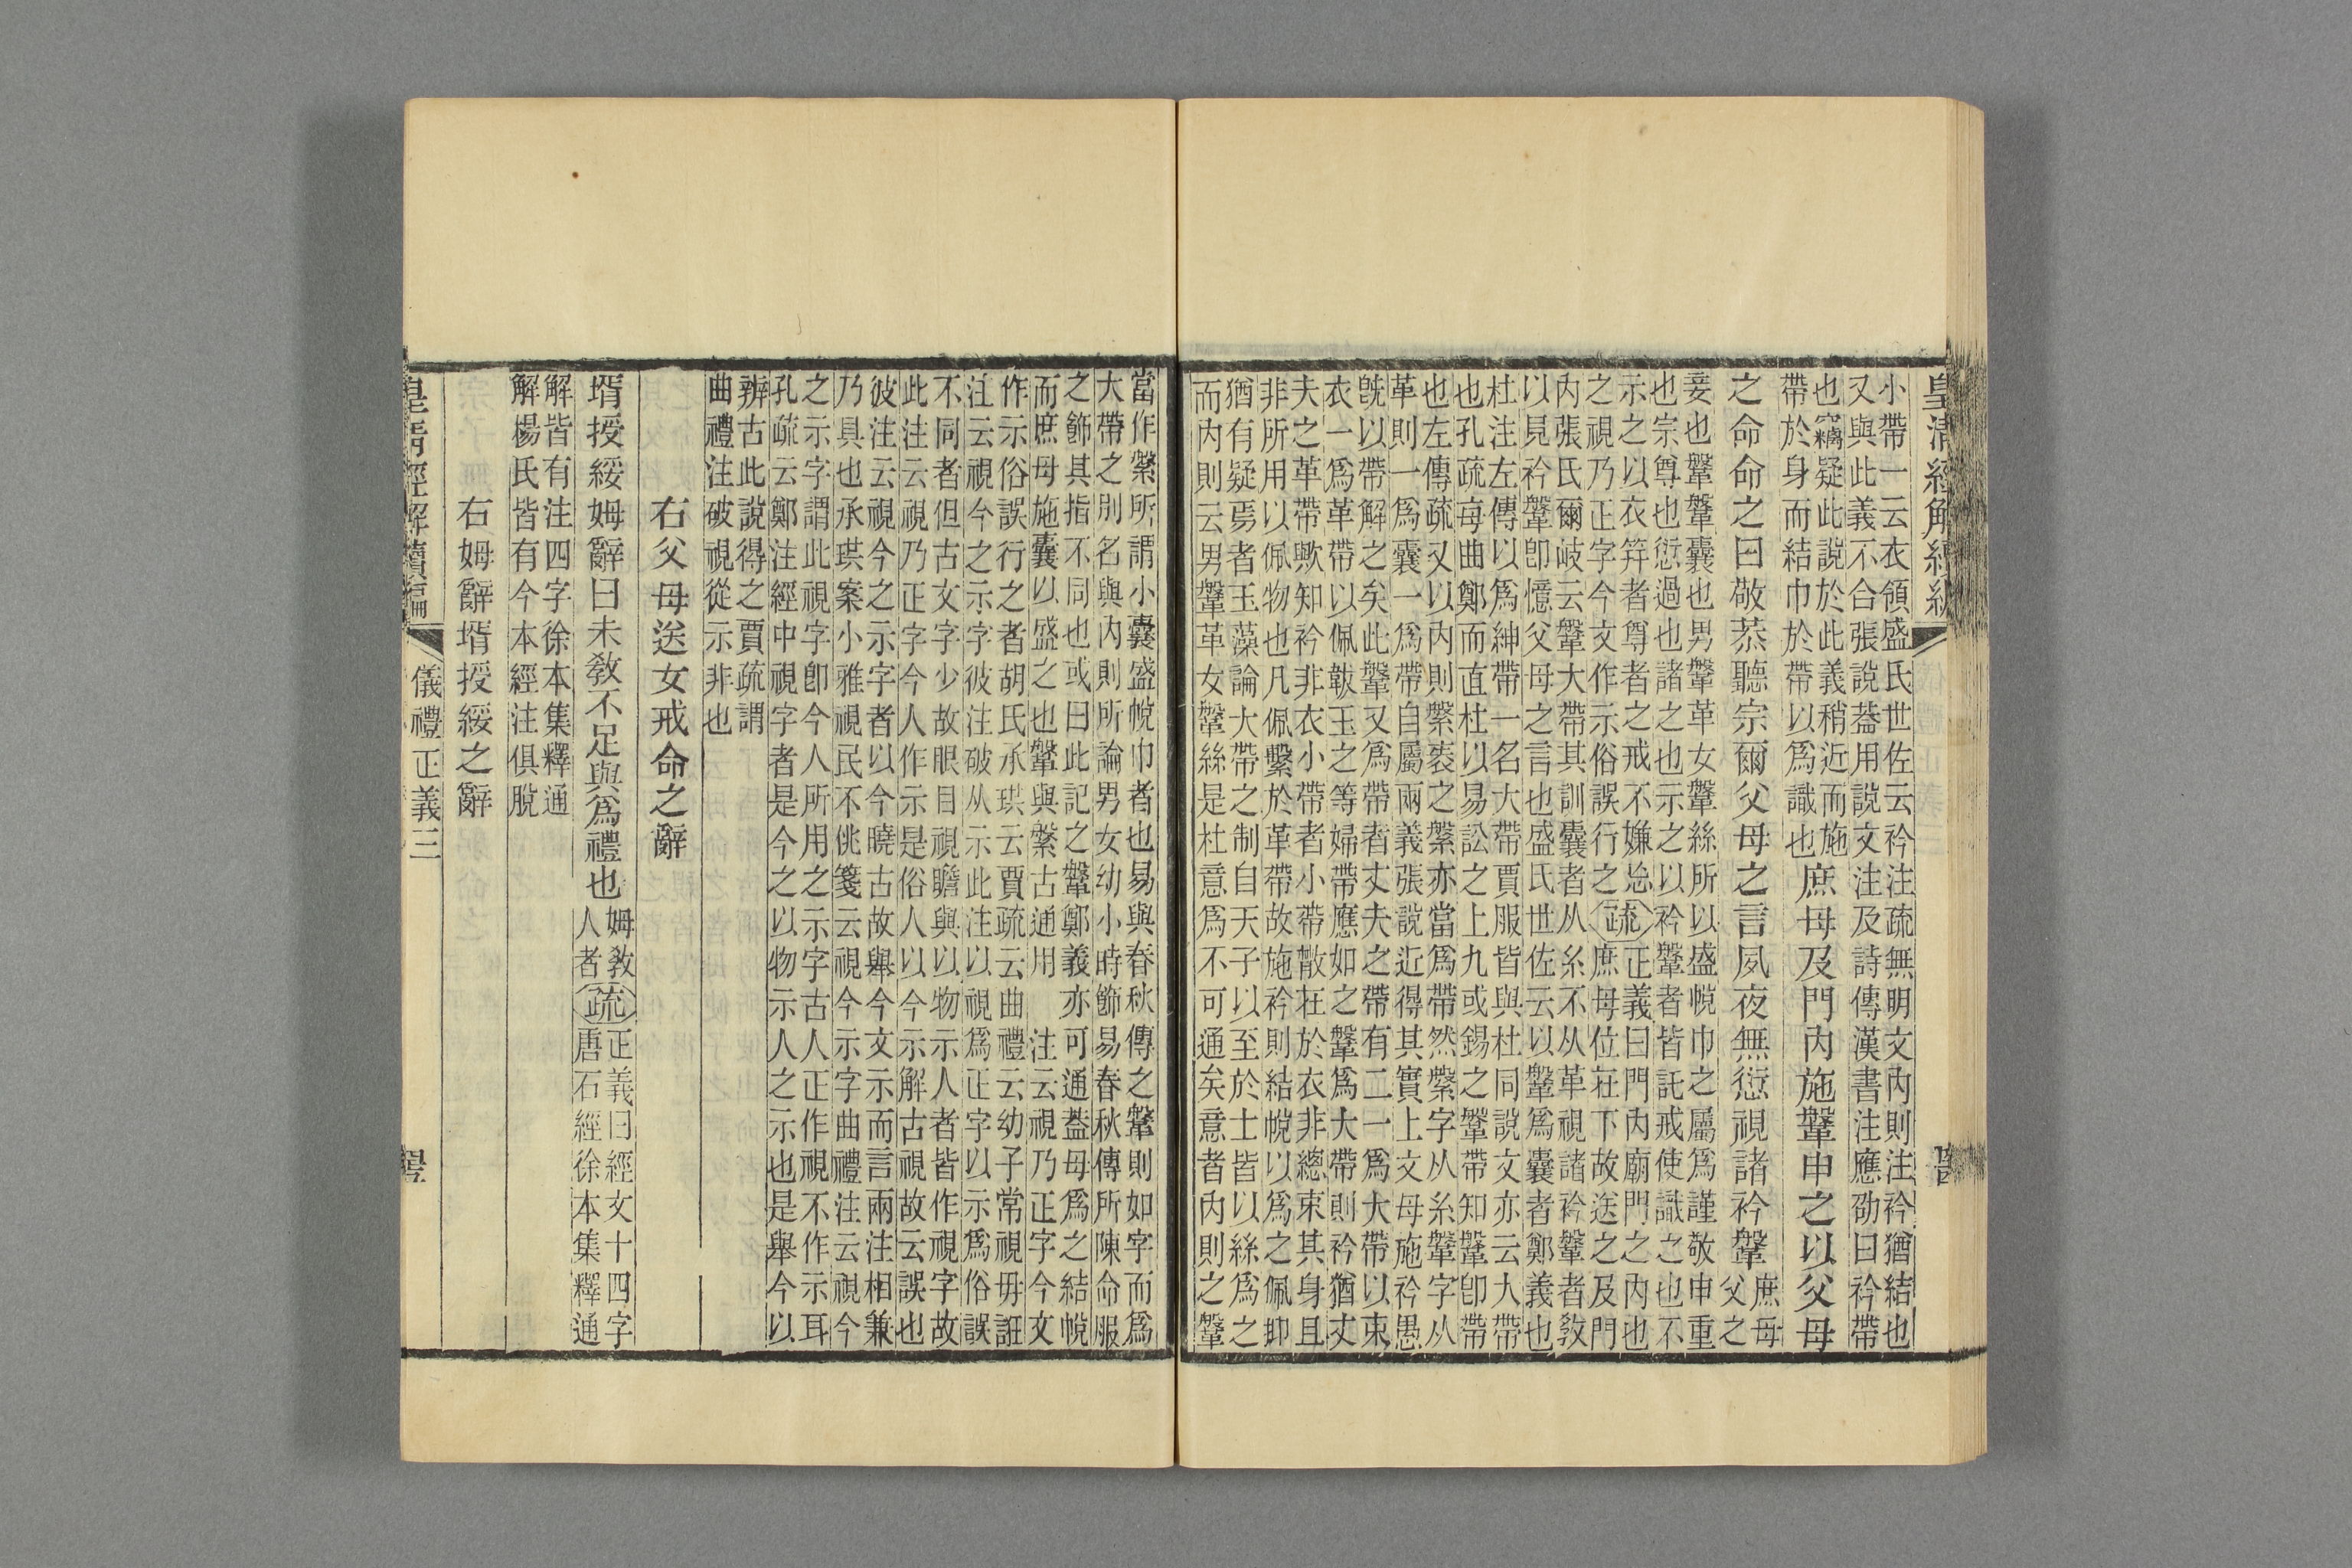 皇清經解續編
小帶一云衣領盛氏世佐云衿注疏無明文內則注衿猶結也
又與此義不合張說葢用說文注及詩傳漢書注應劭曰衿帶
也竊疑此說於此義稍近而施
帶於身而結巾於帶以爲識也
庶母及門內施鞶申之以父母
之命命之曰敬恭聽宗爾父母之言夙夜無愆視諸衿鞶
庶母
父之
妾也鞶鞶囊也男鞶革女鞶絲所以盛帨巾之屬爲謹敬申重
也宗尊也愆過也諸之也示之以衿鞶者皆託戒使識之也不
示之以衣笄者尊者之戒不嫌忩疏正義曰門內廟門之內也
之視乃正字今文作示俗誤行之庶母位在下故送之及門
內張氏爾岐云鞶大帶其訓囊者从糸不从革視諸衿鞶者敎
以見衿鞶卽憶父母之言也盛氏世佐云以鞶爲囊者鄭義也
杜注左傳以爲紳帶一名大帶賈服皆與杜同說文亦云大帶
也孔疏每曲鄭而直杜以易訟之上九或錫之鞶帶知鞶卽帶
也左傳疏又以內則縏袠之縏亦當爲帶然縏字从糸鞶字从
革則一爲囊一爲帶自屬兩義張說近得其實上文母施衿愚
旣以帶解之矣此鞶又爲帶者丈夫之帶有二一爲大帶以束
衣一爲革帶以佩韍玉之等婦帶應如之鞶爲大帶則衿猶丈
夫之革帶歟知衿非衣小帶者小帶散在於衣非總束其身且
非所用以佩物也凡佩繫於革帶故施衿則結帨以爲之佩卽
猶有疑焉者玉藻論大帶之制自天子以至於士皆以絲爲之
而內則云男鞶革女鞶絲是杜意爲不可通矣意者內則之鞶
當作縏所謂小囊盛帨巾者也易與春秋傳之鞶則如字而爲
大帶之別名與內則所論男女幼小時節易春秋傳所陳命服
之飾其指不同也或曰此記之鞶鄭義亦可通葢母爲之結帨
而庶母施囊以盛之也鞶與縏古通用 注云視乃正字今文
作示俗誤行之者胡氏承珙云賈疏云曲禮云幼子常視毋誑
注云視今之示字彼注破从示此注以視爲正字以示爲俗誤
不同者但古文字少故眼目視瞻與以物示人者皆作視字故
此注云視乃正字今人作示是俗人以今示解古視故云誤也
彼注云視今之示字者以今曉古故舉今文示而言兩注相兼
乃具也承珙案小雅視民不佻箋云視今示字曲禮注云視今
之示字謂此視字卽今人所用之示字古人正作視不作示耳
孔疏云鄭注經中視字者是今之以物示人之示也是舉今以
辨古此說得之賈疏謂
曲禮注破視從示非也
右父母送女戒命之辭
壻授綏姆辭曰未敎不足與爲禮也
姆敎
人者
疏正義曰經文十四字
唐石經徐本集釋通
解皆有注四字徐本集釋通
解楊氏皆有今本經注俱脫
右姆辭壻授綏之辭
皇清經解續編 儀禮正義三